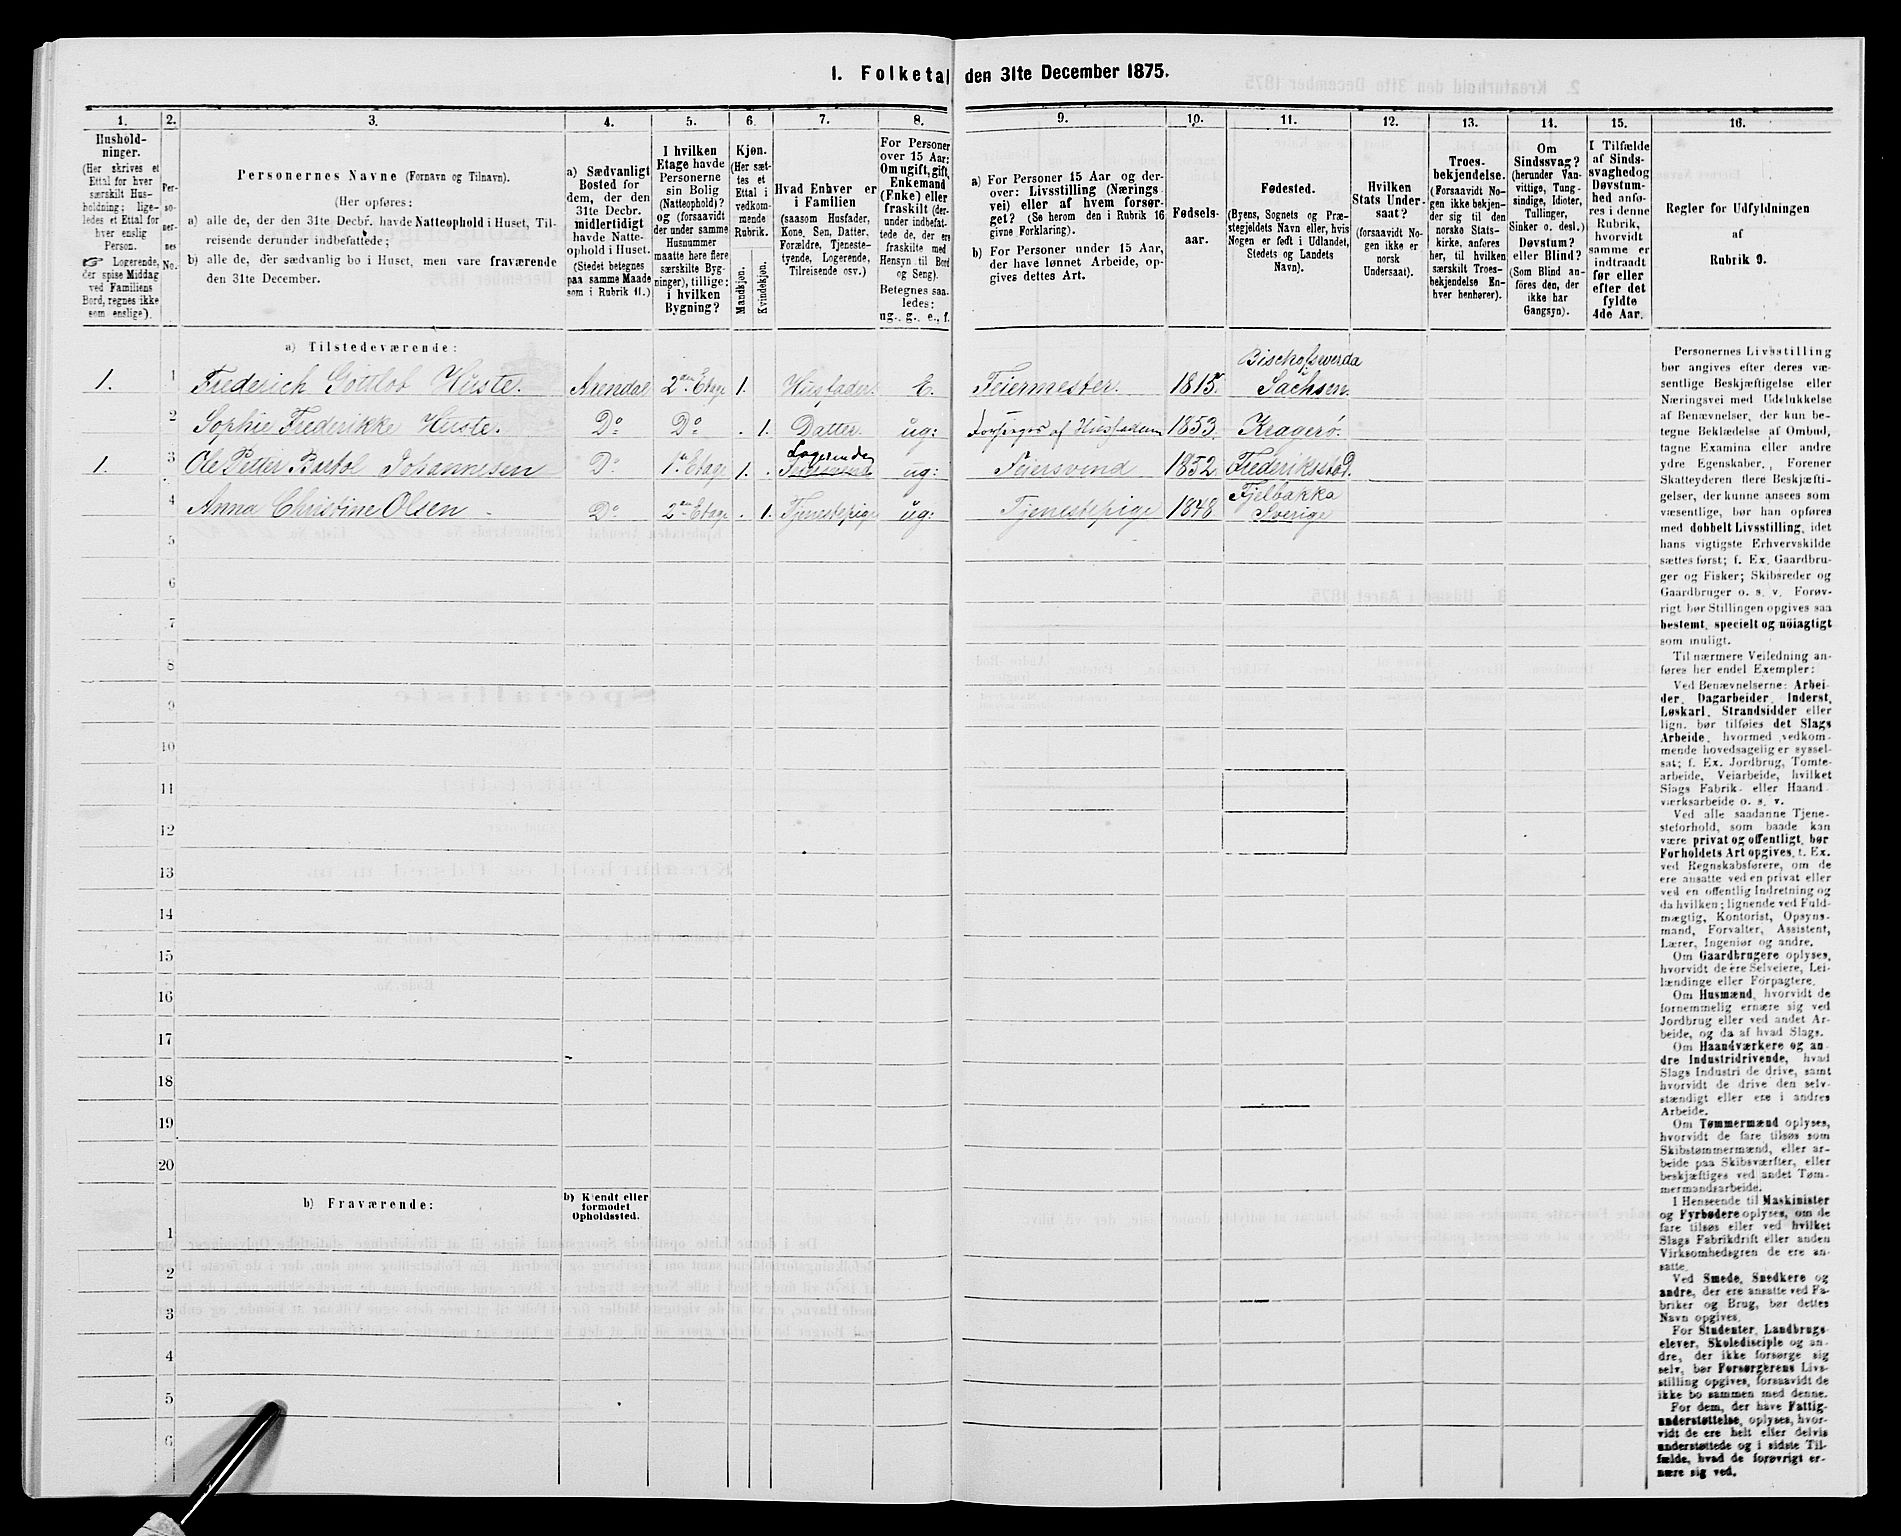 1. Folketal den 31te December 1875.
1. 2. 3. 4. 5. 6. 7. 8. 9. 10. 11. 12. 13. 14. 15. 16.
Hushold-
ninger.
(Her skrives et
Ettal for hver
særskilt Hus-
holdning; lige-
ledes et Ettal for
hver enslig
Person.
☞ Logerende,
der spise Middag
ved Familiens
Bord, regnes ikke
som enslige).
Per-
so-
ner-
nes
No.
Personernes Navne (Fornavn og Tilnavn).
(Her opføres:
a) alle de, der den 31te Decbr. havde Natteophold i Huset, Til-
reisende derunder indbefattede;
b) alle de, der sædvanlig bo i Huset, men vare fraværende
den 31te December.
a) Sædvanligt
Bosted for
dem, der den
31te Decbr.
midlertidigt
havde Natte-
ophold i Huset.
(Stedet betegnes
paa samme Maade
som i Rubrik 11.)
I hvilken
Etage havde
Personerne
sin Bolig
(Natteophold)?
og (forsaavidt
der under samme
Husnummer
maatte høre flere
særskilte Byg-
ninger), tillige:
i hvilken
Bygning?
Kjøn.
(Her sæt-
tes et
Ettal i
vedkom-
mende
Rubrik.
Mandkjøn.
Kvindekjøn.
Hvad Enhver er
i Familien
(saasom Husfader,
Kone, Søn, Datter,
Forældre, Tjeneste-
tyende, Logerende,
Tilreisende osv.)
For Personer
over 15 Aar:
Om ugift, gift,
Enkemand
(Enke) eller
fraskilt (der-
under indbefat-
tede de, der ere
fraskilte med
Hensyn til Bord
og Seng).
Betegnes saa-
ledes:
ug., g., e., f.
a) For Personer 15 Aar og der-
over: Livsstilling (Nærings
vei) eller af hvem forsør-
get? (Se herom den i Rubrik 16
givne Forklaring).
b) For Personer under 15 Aar,
der have lønnet Arbeide, op-
gives dettes Art.
Fødsels-
aar.
Fødested.
(Byens, Sognets og Præ-
stegjeldets Navn eller, hvis
Nogen er født i Udlandet,
Stedets og Landets
Navn).
Hvilken
Stats Under-
saat?
(forsaavidt No-
gen ikke er
norsk
Undersaat).
Troes-
bekjendelse.
(Forsaavidt No-
gen ikke bekjen-
der sig til den
norske Stats-
kirke, anføres
her, til hvilken
særskilt Troes-
bekjendelse En-
hver henhører).
Om
Sindssvag?
(herunder Van-
vittige, Tung-
sindige, Idioter,
Tullinger,
Sinker o. desl.)
Døvstum?
eller Blind?
(Som Blind an-
føres den, der
ikke har
Gangsyn).
I Tilfælde
af Sinds-
svaghed og
Døvstum-
hed anfø-
res i denne
Rubrik,
hvorvidt
samme er
indtraadt
før eller
efter det
fyldte
4de Aar.
Regler for Udfyldningen
af
Rubrik 9.
a) Tilstedeværende:
Bischofswerda
1. 1 Frederich Gottlob Huste. Arendal 2den Etage 1. Husfader. E. Feiermester. 1815. Sachsen.
2 Sophie Frederikke Huste. Do Do . 1. Datter. ug: Forsørges af Husfaderen 1853. Kragerø.
Logerende
1. 3 Ole Petter Bartol Johannesen Do 1ste Etage 1. . ug: Feiersvend 1852. Frederikstad.
Fjelbakka
4 Anna Christine Olsen Do 2den Etage . 1. Tjenestepige ug: Tjenestepige 1848 Sverige
5
6
7
8
9
10
11
12
13
14
15
16
17
18
19
20
b) Fraværende:
b) Kjendt eller
formodet
Opholdssted.
1
2
3
4
5
6
Personernes Livsstilling
bør angives efter deres væ-
sentlige Beskjæftigelse eller
Næringsvei med Udelukkelse
af Benævnelser, der kun be-
tegne Beklædelse af Ombud,
tagne Examina eller andre
ydre Egenskaber. Forener
Skatteyderen flere Beskjæfti-
gelser, der kunne ansees som
væsentlige, bør han opføres
med dobbelt Livsstilling, idet
hans vigtigste Erhvervskilde
sættes først; f. Ex. Gaardbru-
ger og Fisker; Skibsreder og
Gaardbruger o. s. v. Forøv-
rigt bør Stillingen opgives saa
bestemt, specielt og nøiagtigt
som muligt.
Til nærmere Veiledning an-
føres her endel Exempler:
Ved Benævnelserne: Arbei-
der, Dagarbeider, Inderst,
Løskarl, Strandsidder eller
lign. bør tilføies det Slags
Arbeide, hvormed vedkom-
mende hovedsagelig er syssel-
sat; f. Ex. Jordbrug, Tomte-
arbeide, Veiarbeide, hvilket
Slags Fabrik- eller Haand
værksarbeide o. s. v.
Ved alle saadanne Tjene-
steforhold, som baade kan
være privat og offentligt, bør
Forholdets Art opgives, t. Ex.
ved Regnskabsførere, om de
ere ansatte ved en privat eller
ved en offentlig Indretning og
da hvilken; lignende ved Fuld-
mægtig, Kontorist, Opsyns-
mand, Forvalter, Assistent,
Lærer, Ingeniør og andre.
Om Gaardbrugere oplyses,
hvorvidt de ere Selveiere, Lei-
lændinge eller Forpagtere.
Om Husmænd, hvorvidt de
fornemmelig ernære sig ved
Jordbrug eller ved andet Ar-
beide, og da af hvad Slags.
Om Haandværkere og an-
dre Industridrivende, hvad
Slags Industri de drive, samt
hvorvidt de drive den selv-
stændigt eller ere i andres
Arbeide.
Om Tømmermænd oplyses,
hvorvidt de fare tilsøs som
Skibstømmermænd, eller ar-
beide paa Skibsværfter, eller
beskjæftiges ved andet Tøm-
mermandsarbeide.
I Henseende til Maskinister
og Fyrbødere oplyses, om de
fare tilsøs eller ved hvilket
Slags Fabrikdrift eller anden
Virksomhedsgren de ere an-
satte.
Ved Smede, Snedkere og
andre, der ere ansatte ved Fa-
briker og Brug, bør dettes
Navn opgives.
For Studenter, Landbrugs-
elever, Skoledisciple og an-
dre, der ikke forsørge sig
selv, bør Forsørgerens Livs-
stilling opgives, forsaavidt de
ikke bo sammen med denne.
For dem, der have Fattig-
understøttelse, oplyses, hvor-
vidt de ere helt eller delvis
understøttede og i sidste Til-
fælde, hvad de forøvrigt er-
nære sig ved.